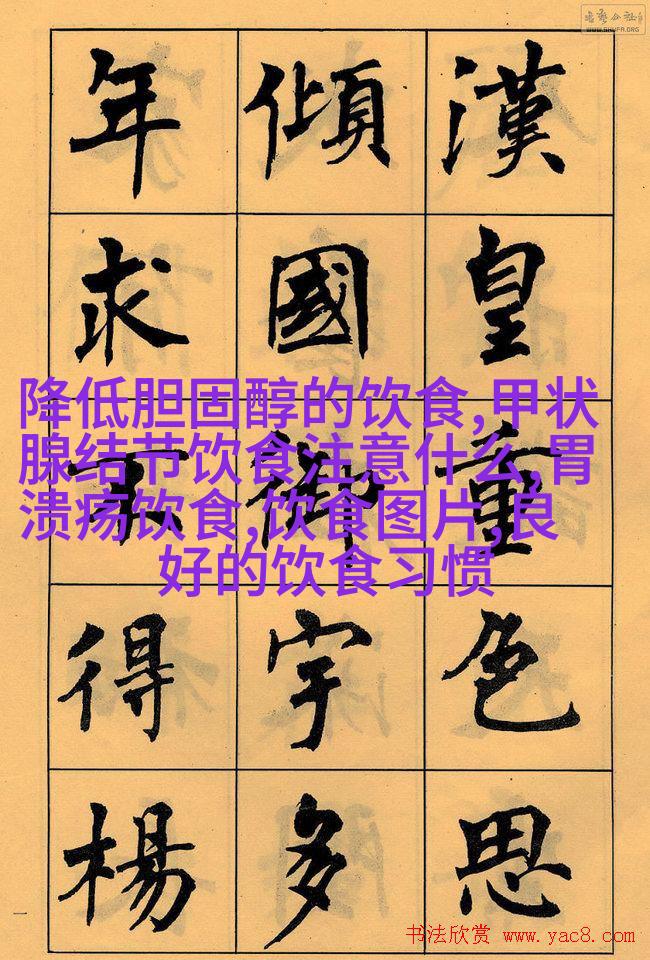 漢皇重色思
傾國御宇多
年求不得楊
降低胆固醇的饮食,甲状
腺结节饮食注意什么,胃
溃疡饮食,饮食图片,良
好的饮食习惯
一
WWW.SHUFA.ORG
书法欣赏 www.yac8.com